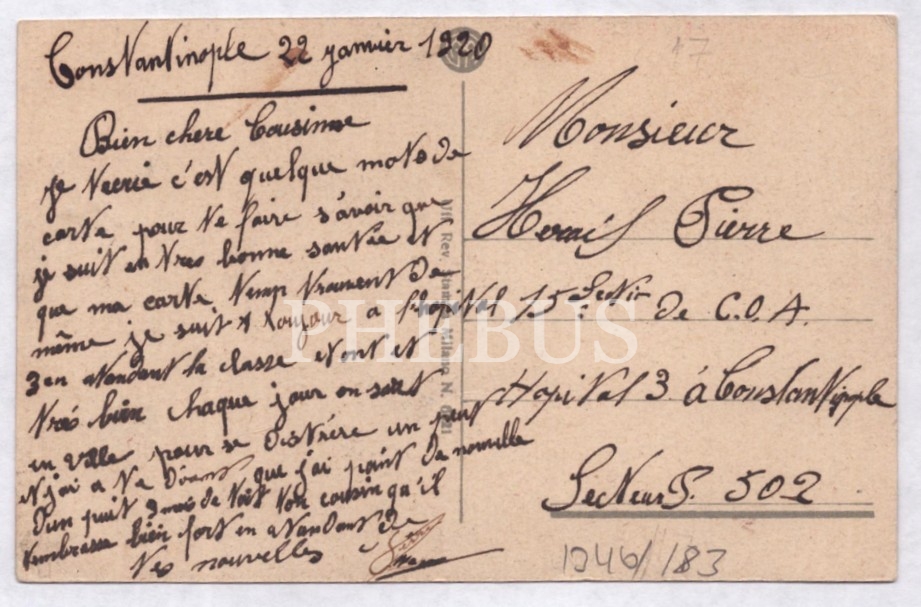 Constantinople 22 janvier 1920
Bien chere Cousinne
Je t'ecrie c'est quelque mots de
carte pour te faire s'avoir que
je suit en tres bonne santée et
que ma carte temp trouvent de
même je suit toujour a hopital
3 en atendent la classe etont et
trés bien chaque jour on sort
en ville pour se distrére un peut
et j'ai a te
d'un puit 3 mois de toit que j'ai point de nouvelle
ton cousin qu'il
t'embrasse bien fort en atendant de
tes nouvelles
Vis. Rev. Stampa Milano N.
17
Monsieur
Pierre
15 Setio de C.O.A.
Hopital 3 à Constantinple
Secteur P. 502
1246/183
PHEBUS